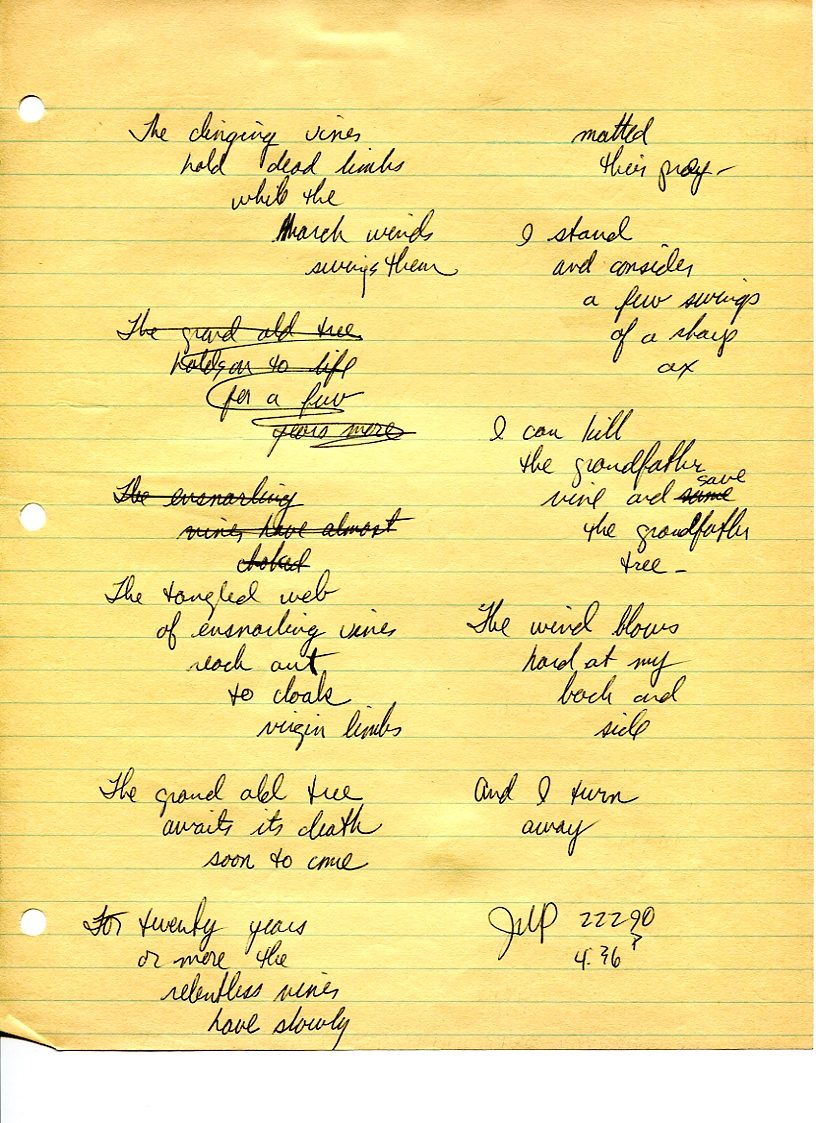 The clinging vines
hold dead limbs
while the
March winds
swings them
The grand old tree
holds on to life
for a few
years more
The ensnarling
vines have almost
choked
The tangled web
of ensnarling vines
reach out
to cloak
virgin limbs
The grand old tree
awaits its death
soon to come
For twenty years
or more the
relentless vines
have slowly
matted
their prey –
I stand
and consider
a few swings
of a sharp
ax
I can kill
the grandfather
save
vine and same
the grandfather
tree –
The wind blows
hard at my
back and
side
And I turn
away
22290
4:36 P